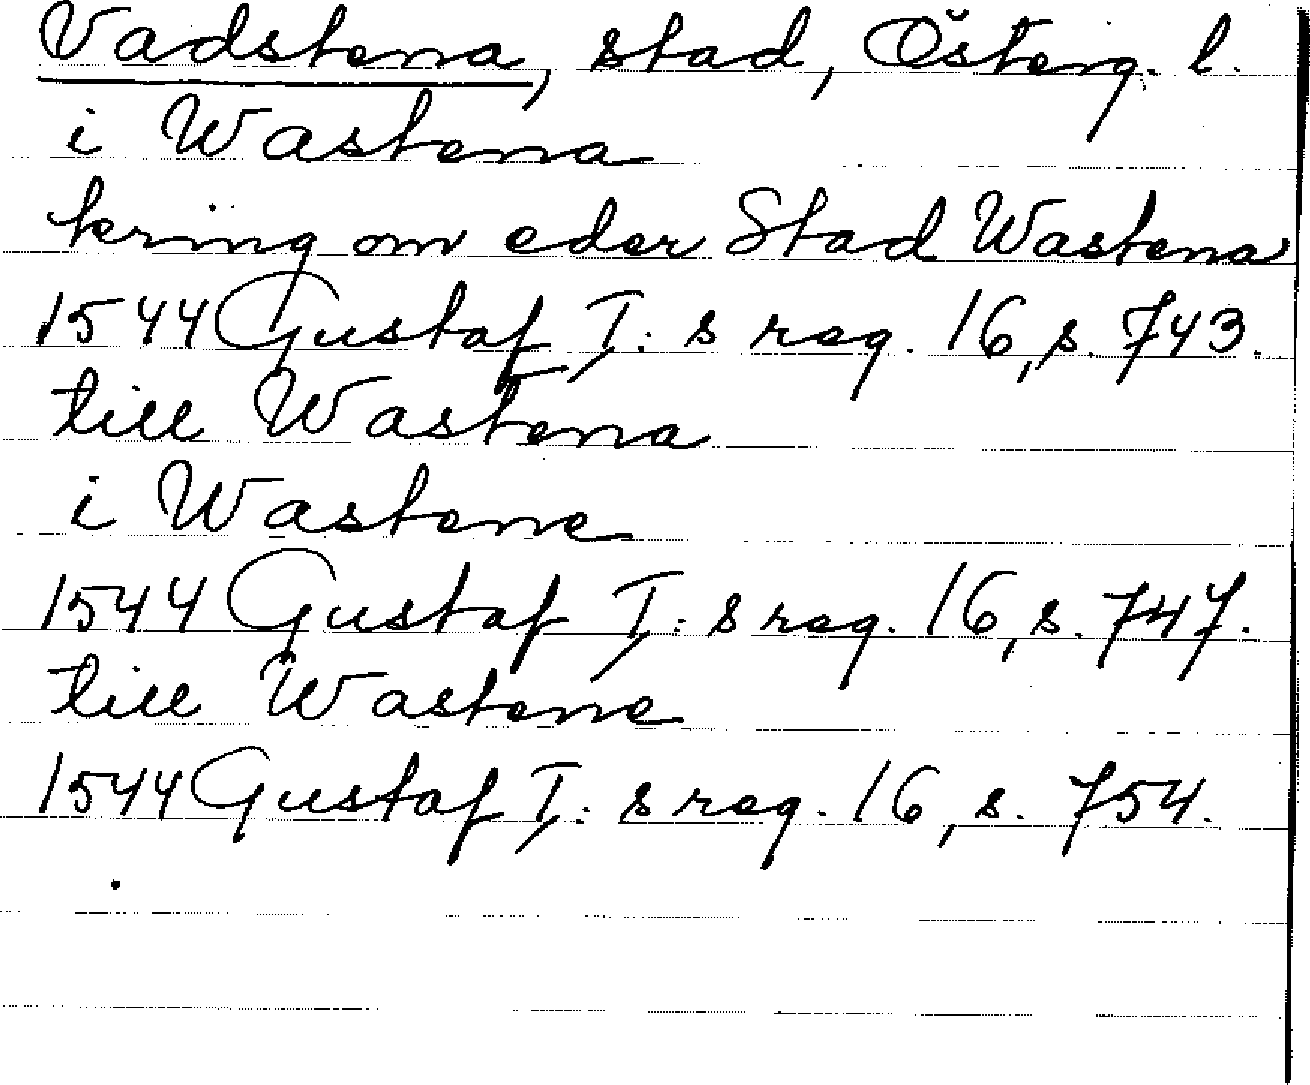 Vadstena, stad, Österg. l.
i Wastena
kring om eder Stad Wastena
1544 Gustaf I:s reg. 16, s. 743.
till Wastena
i Wastene
1544 Gustaf I:s reg. 16, s. 747.
till Wastene
1544 Gustaf I:s reg. 16, s. 754.